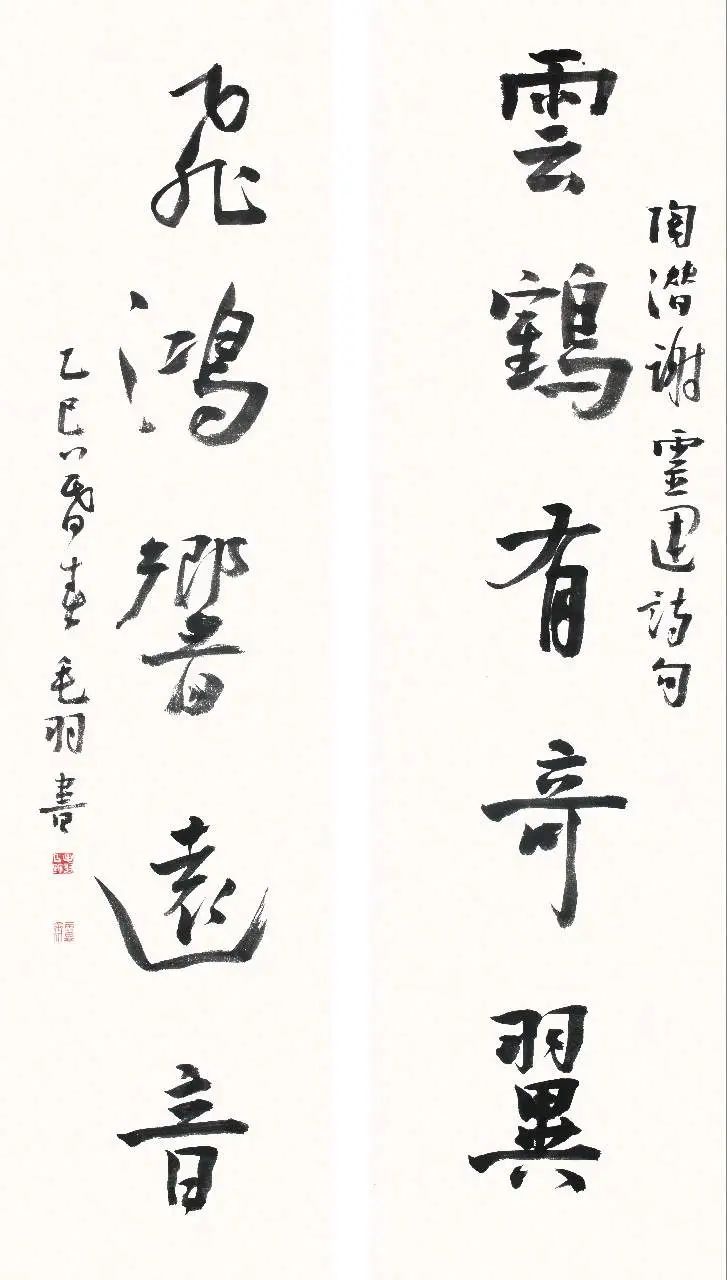 陶潛謝靈運詩句
雲鶴有奇翼
飛鴻響遠音
乙巳八昏春毛羽書